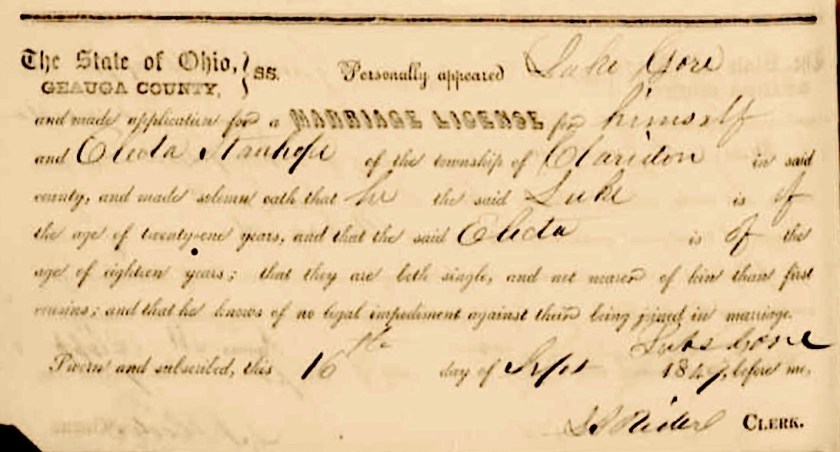 The State of Ohio, } ss. Personally appeared Luke Gore
GEAUGA COUNTY,
and made application for a MARRIAGE LICENSE for himself
and Electa Stanhope of the township of Claridon in said
county, and made solemn oath that he the said Luke is of
the age of twenty-one years, and that the said Electa is of the
age of eighteen years; that they are both single, and not nearer of kin than first
cousins; and that he knows of no legal impediment against their being joined in marriage.
Luke Gore
Sworn and subscribed, this 16th day of Sept 1849, before me,
CLERK.